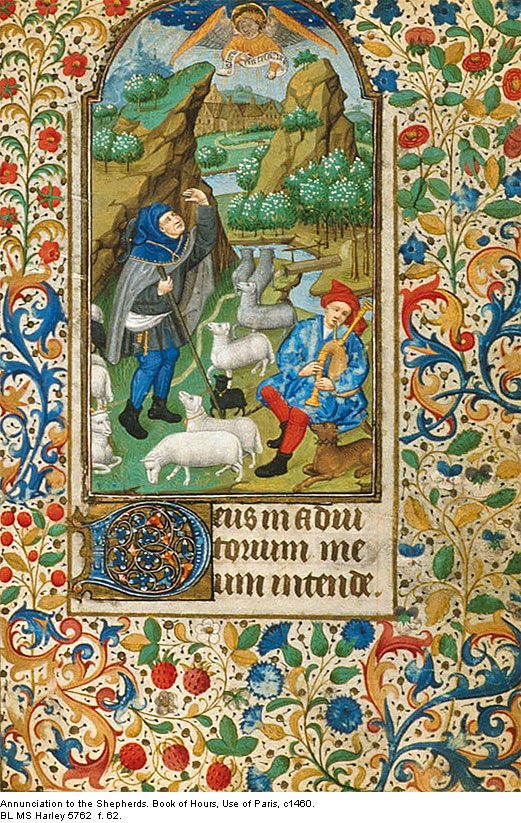 Deus in adiu
torium me
um intende.
Annunciation to the Shepherds. Book of Hours, Use of Paris, c1460.
BL MS Harley 5762 f. 62.